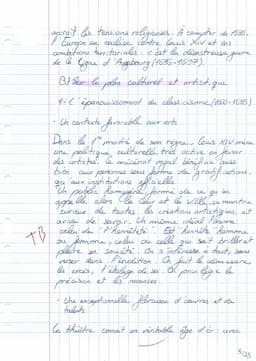 accroît les tensions religieuses. À compter de 1686,
l'Europe se coalise contre Louis XIV et ses
ambitions territoriales : c'est la désastreuse guerre
de la Ligue d'Augsbourg (1686-1697).
B) Sur le plan culturel et artistique
1- L'épanouissement du classicisme (1660-1685)
- Un contexte favorable aux arts
Dans la 1ère moitié de son règne, Louis XIV mène
une politique culturelle très active en faveur
des artistes. Le mécénat royal bénéficie aussi
bien aux personnes sous forme de gratifications,
qu'aux institutions officielles.
Un public homogène, formé de ce qu'on
appelle alors la Cour et la Ville, se montre
curieux de toutes les créations artistiques, et
avide de savoir. Un même idéal l'anime
celui de l'"Honnêteté". Est honnête homme
ou femme, celui ou celle qui sait briller et
plaire en société. On s'intéresse à tout, sans
verser dans l'érudition. On fuit la démesure
les excès, l'étalage de soi. On prône la
précision et les nuances.
TB
- Une exceptionnelle floraison d'œuvres et de
talents
Le théâtre connaît un véritable âge d'or avec
5/25